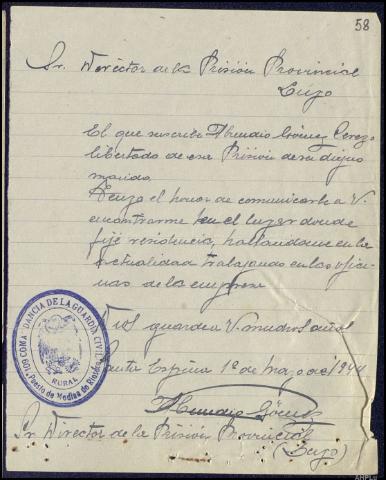 58
Sr. Director de la Prisión Provincial
Lugo
El que suscribe Abundio Gómez Cerezo
libertado de esa Prisión de su digno
mando.
Tengo el honor de comunicarle a V.
encontrarme en el lugar donde
fijé residencia, hallandome en la
actualidad trabajando en las ofici-
nas de la empresa
Dios guarde a V. muchos años
Santa Espina 1º de Mayo de 1944
Abundio Gómez
Sr Director de la Prisión Provincial
(Lugo)
COMANDANCIA DE LA GUARDIA CIVIL
RURAL
Puesto de Medina de Rioseco
AHPLu